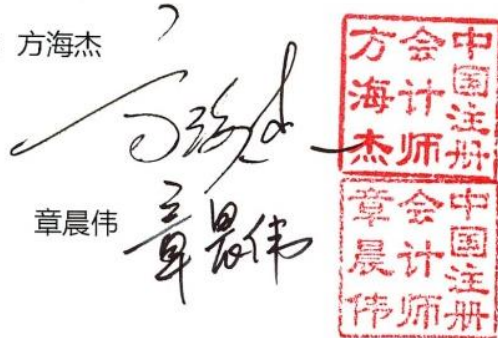 方海杰
方海杰
章晨伟
章晨伟
中国注册
会计师
方海杰
中国注册
会计师
章晨伟